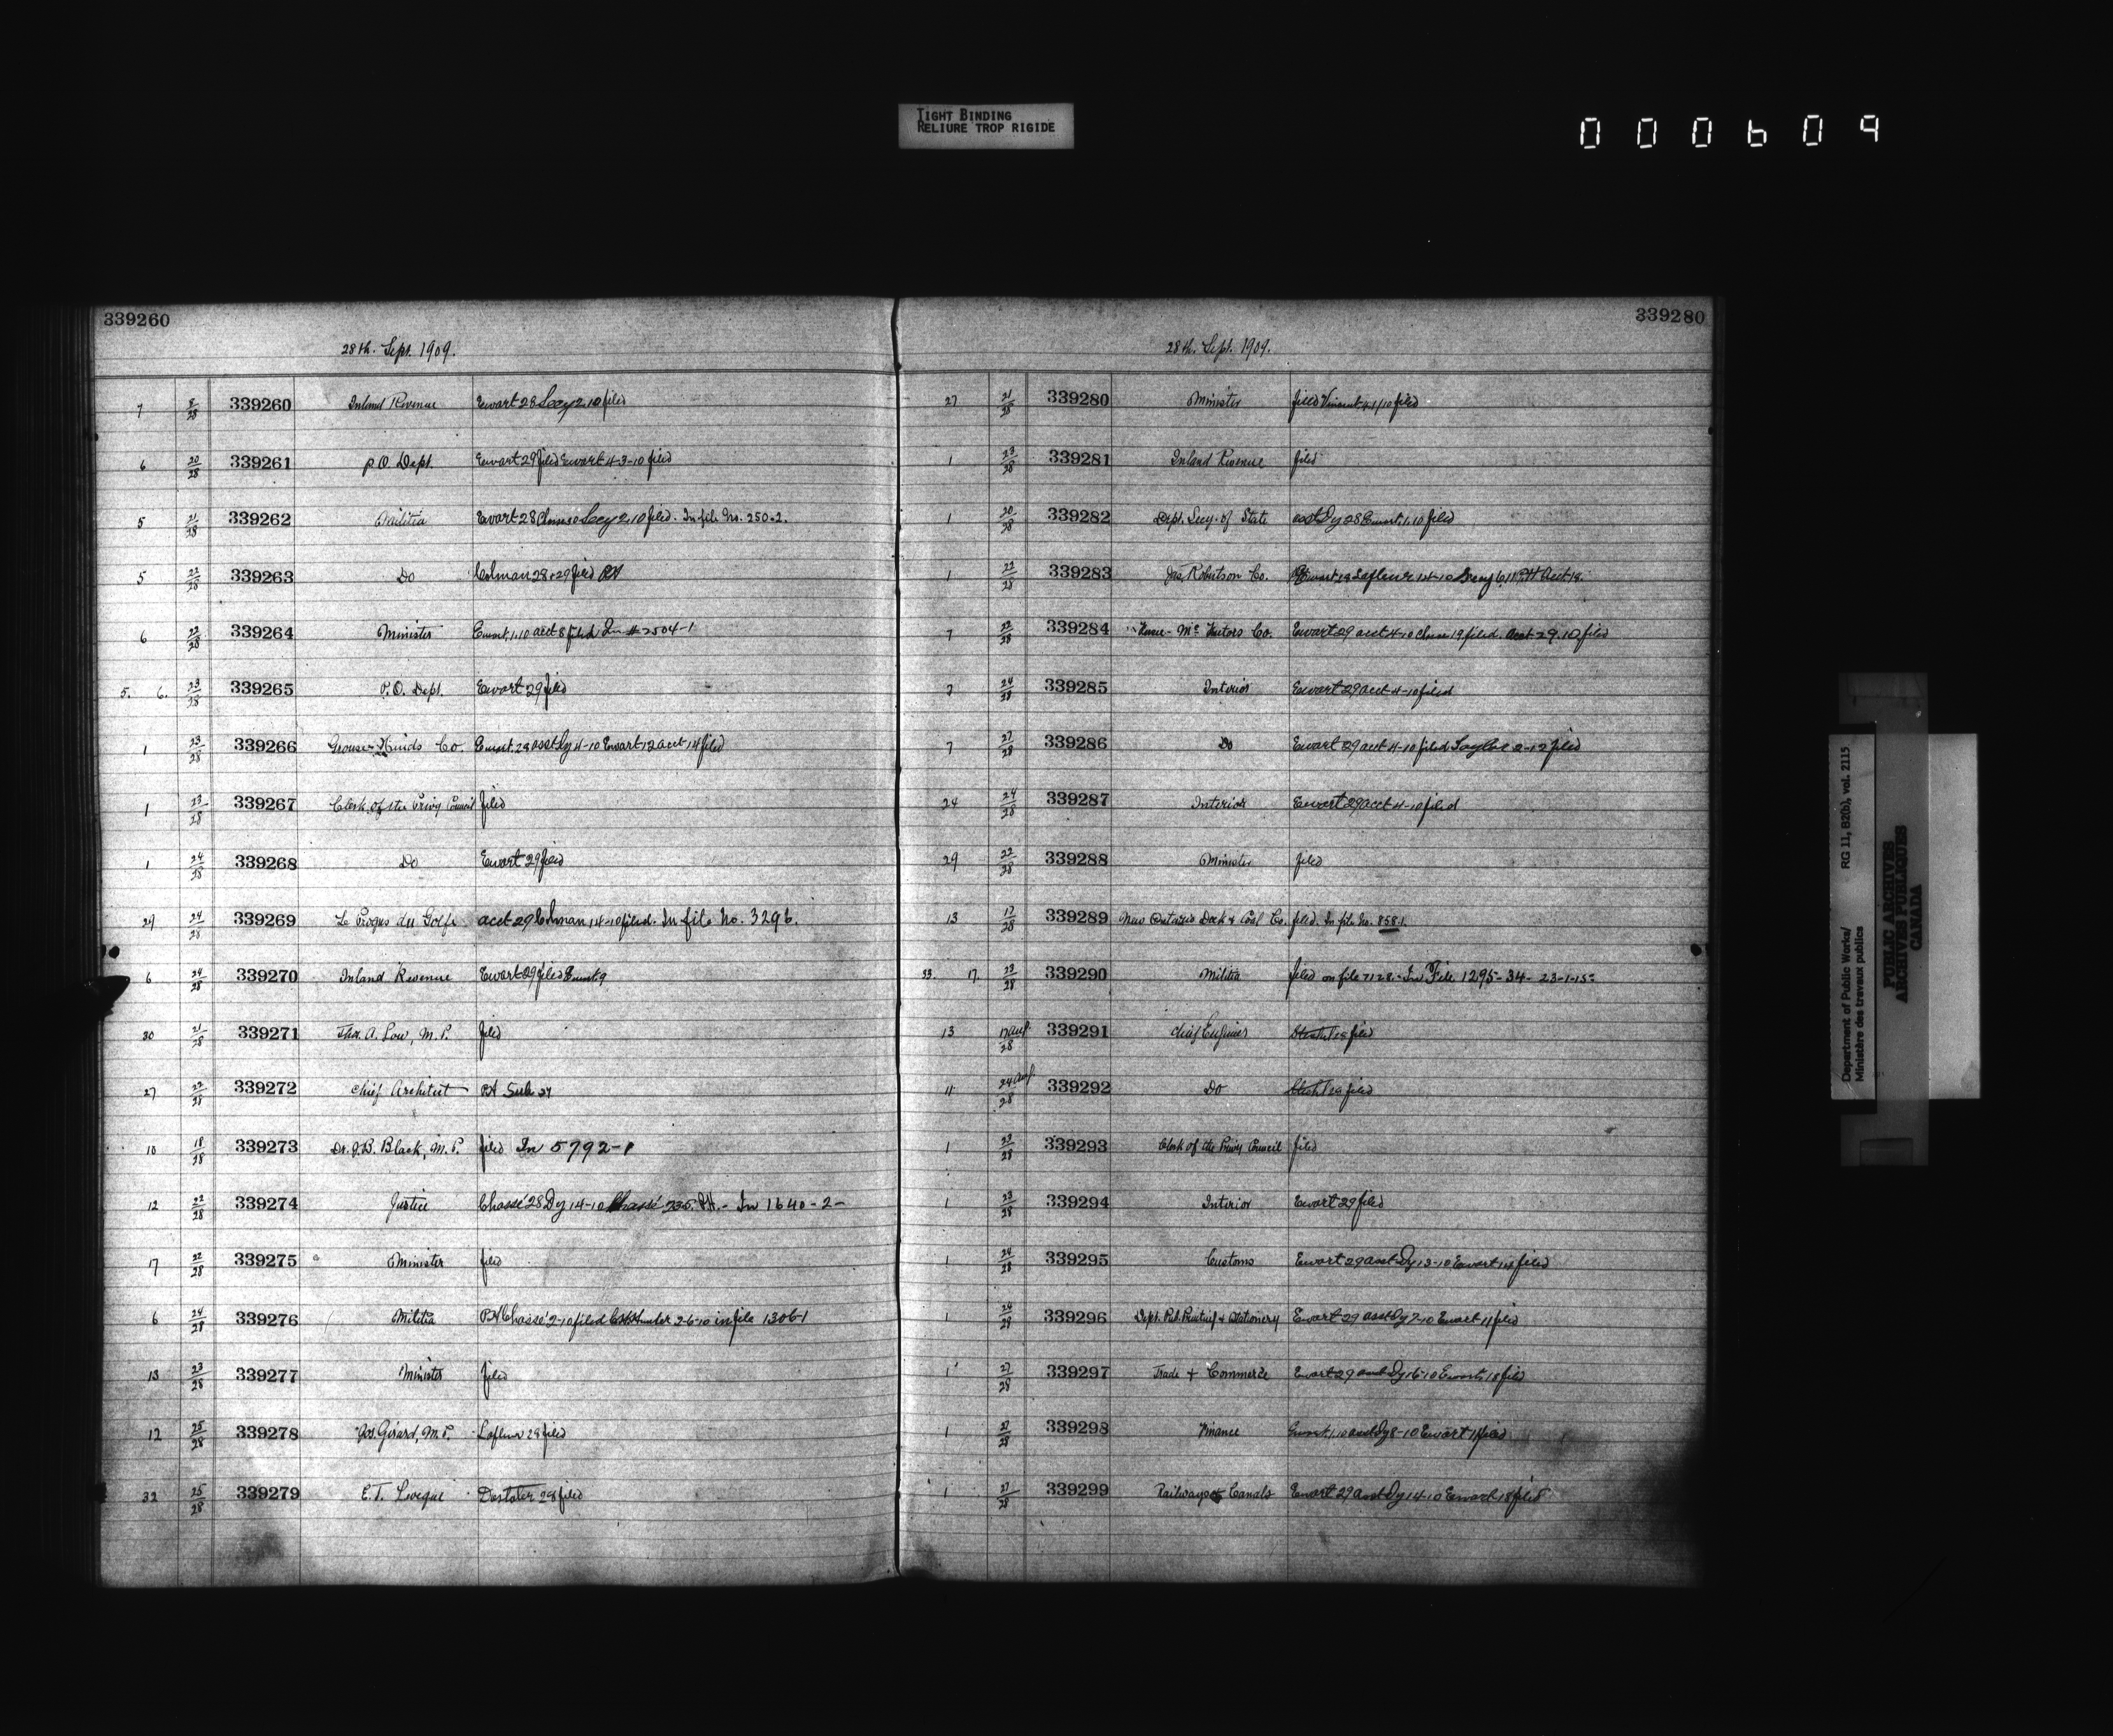 TIGHT BINDING
RELIURE TROP RIGIDE
000609
339260
28th. Sept. 1909.
7 8/28 339260 Inland Revenue Ewart 28 Secy 2.10 filed
6 20/28 339261 P.O. Dept. Ewart 29 filed Ewart 4-3-10 filed
5 21/28 339262 Militia Ewart 28 Secy 2.10 filed. In file No. 250-2.
5 22/28 339263 Do Colman 28 29 filed PA
6 22/28 339264 Minister Ewart 1.10 acct 8 filed In # 2504-1
5. 6. 23/28 339265 P.O. Dept. Ewart 29 filed
1 23/28 339266 Grouse Hinds Co. Ewart 28 asst Dy 4-10 Ewart 12 acct 14 filed
1 23/28 339267 Clerk of the Privy Council filed
1 24/28 339268 Do Ewart 29 filed
29 24/28 339269 Le Progrès du Golfe acct 29 Colman 14-10 filed. In file No. 3296.
6 24/28 339270 Inland Revenue Ewart 29 filed Ewart 9
30 21/28 339271 Thos. A. Low, M.P. filed
27 22/28 339272 Chief Architect PA Sub 27
10 18/28 339273 Dr. J.B. Black, M.P. filed In 5792-1
12 22/28 339274 Justice Chassé 28 Dy 14-10 Chassé PA.- In 1640-2-
17 22/28 339275 Minister filed
6 24/28 339276 Militia PA Chassé 2-10 filed Hunter 2-6-10 in file 1306-1
13 23/28 339277 Minister filed
12 25/28 339278 Jos. Girard, M.P. Lafleur 29 filed
32 25/28 339279 E.T. 28 filed
339280
28th. Sept. 1909.
27 21/28 339280 Minister filed Vincent 4/10 filed
1 23/28 339281 Inland Revenue filed
1 20/28 339282 Dept. Secy. of State asst Dy 28 Ewart 1.10 filed
1 22/28 339283 Jas. Robertson Co. Ewart Lafleur 14-10 Secy PA Acct 18.
7 22/28 339284 Co. Ewart 29 acct 4-10 19 filed. Acct 29.10 filed
7 24/28 339285 Interior Ewart 29 acct 4-10 filed
7 27/28 339286 Do Ewart 29 acct 4-10 filed Taylor 2-12 filed
24 24/28 339287 Interior Ewart 29 acct 4-10 filed
29 22/28 339288 Minister filed
13 17/28 339289 New Ontario Dock & Coal Co. filed. In file No. 858-1.
33. 17. 23/28 339290 Militia filed on file 7128- In File 1295-34- 23-1-15-
13 17 Aug./28 339291 Chief Engineer filed
11 24 Aug./28 339292 Do filed
1 23/28 339293 Clerk of the Privy Council filed
1 23/28 339294 Interior Ewart 29 filed
1 24/28 339295 Customs Ewart 29 asst Dy 13-10 Ewart 14 filed
1 24/28 339296 Dept. Pub. Printing & Stationery Ewart 29 asst Dy 7-10 Ewart 11 filed
1 27/28 339297 Trade & Commerce Ewart 29 asst Dy 16-10 Ewart 18 filed
1 27/28 339298 Finance Ewart 1.10 asst Dy 8-10 Ewart 11 filed
1 27/28 339299 Railways & Canals Ewart 29 asst Dy 14-10 Ewart 18 filed
Department of Public Works/ RG 11, B2(b), vol. 2115
Ministère des travaux publics
PUBLIC ARCHIVES
ARCHIVES PUBLIQUES
CANADA